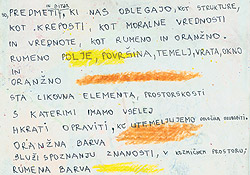 IN BITKE
PREDMETI, KI NAS OBLEGAJO, KOT STRUKTURE,
KOT KREPOSTI, KOT MORALNE VREDNOSTI
IN VREDNOTE, KOT RUMENO IN ORANŽNO.
RUMENO POLJE, POVRŠINA, TEMELJ, VRATA, OKNO
IN
ORANŽNO
STA LIKOVNA ELEMENTA, PROSTORSKOSTI
S KATERIMI IMAMO VSELEJ
HKRATI OPRAVITI, KO UTEMELJUJEMO
ORANŽNA BARVA
SLUŽI SPOZNANJU ZNANOSTI, V KOZMIČNEM PROSTORU,
RUMENA BARVA